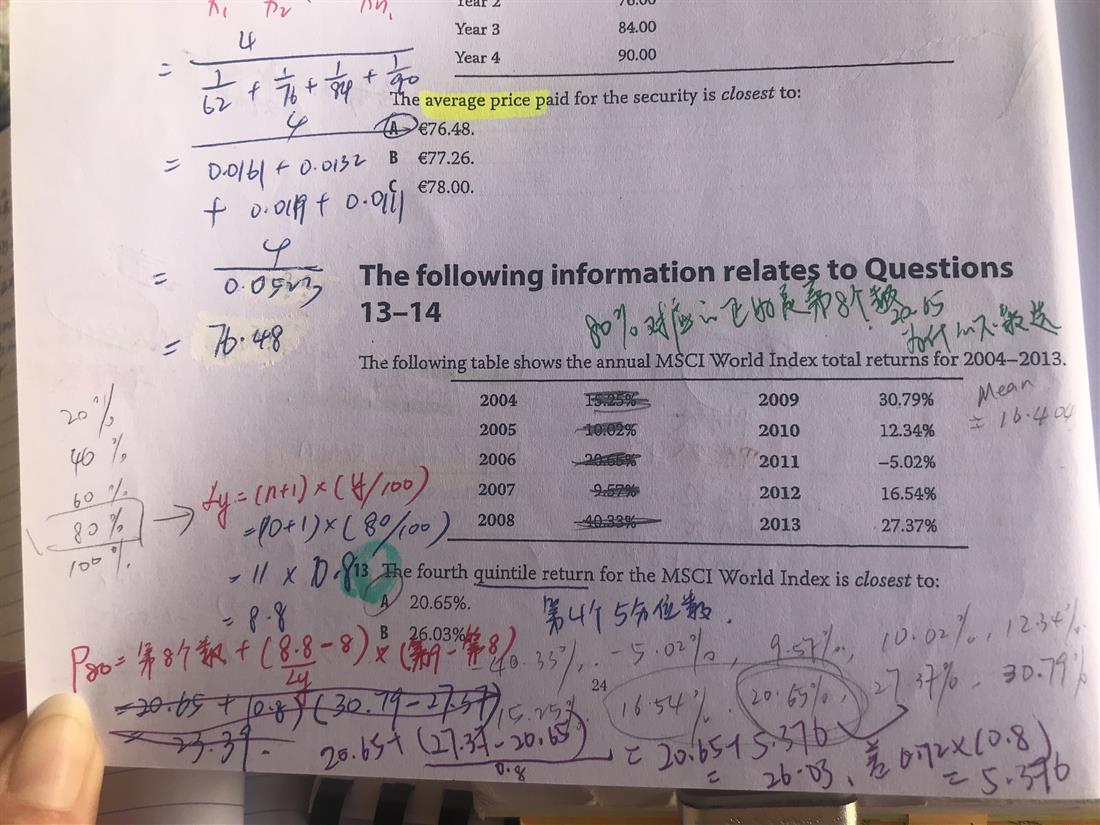 Year 2 76.00
Year 3 84.00
Year 4 90.00
The average price paid for the security is closest to:
A €76.48.
B €77.26.
C €78.00.
= 4 / (1/62 + 1/76 + 1/84 + 1/90)
= 4 / (0.0161 + 0.0132
+ 0.0119 + 0.0111)
= 4 / 0.0523
= 76.48
The following information relates to Questions
13–14
80%对应
第8个数 20.65
The following table shows the annual MSCI World Index total returns for 2004–2013.
2004 15.25% 2009 30.79%
2005 10.02% 2010 12.34%
2006 20.65% 2011 –5.02%
2007 9.57% 2012 16.54%
2008 40.33% 2013 27.37%
Mean
= 16.404
20%
40%
60%
80%
100%
Ly = (n+1) × (y/100)
= (10+1) × (80/100)
= 11 × 0.8
= 8.8
13 The fourth quintile return for the MSCI World Index is closest to:
A 20.65%.
B 26.03%.
第4个5分位数.
P80 = 第8个数 + (8.8-8) × (第9-第8)
Ly
= 20.65 + (0.8) (30.79-27.37)
= 23.39
40.33%, -5.02%, 9.57%, 10.02%, 12.34%
15.25% 16.54% 20.65%, 27.37%, 30.79%
24
20.65 + (27.37-20.65) 0.8
= 20.65 + 5.376
= 26.03, 差 6.72×(0.8)
= 5.376